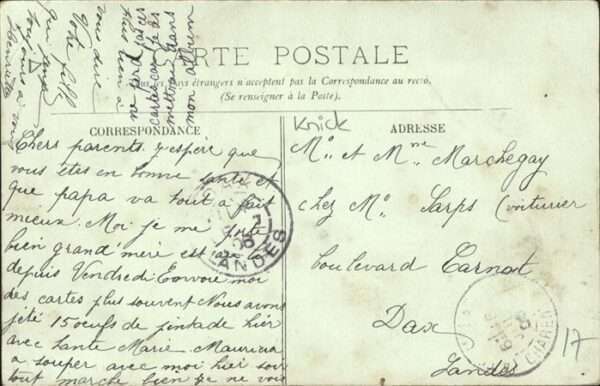 CARTE POSTALE
Tous les pays étrangers n'acceptent pas la Correspondance au recto.
(Se renseigner à la Poste).
CORRESPONDANCE
ADRESSE
Knick
Chers parents j'espère que
vous êtes en bonne santé et
que papa va tout à fait
mieux. Moi je me porte
bien grand'mère est
depuis Vendredi Envoie moi
des cartes plus souvent Nous avons
14 15 oeufs de pintade hier
avec tante Marie. Maurice
a souper avec moi hier soir
tout marche bien je ne vois
plus rien à
vous dire
Votre fille
qui
toujours
Henriette
ne perd pas ces
cartes car je les
mettrai dans
mon album
Mr. et Mme Marchegay
chez Mr. Sarps (voiturier
boulevard Carnot
Dax
Landes
LANDES
17